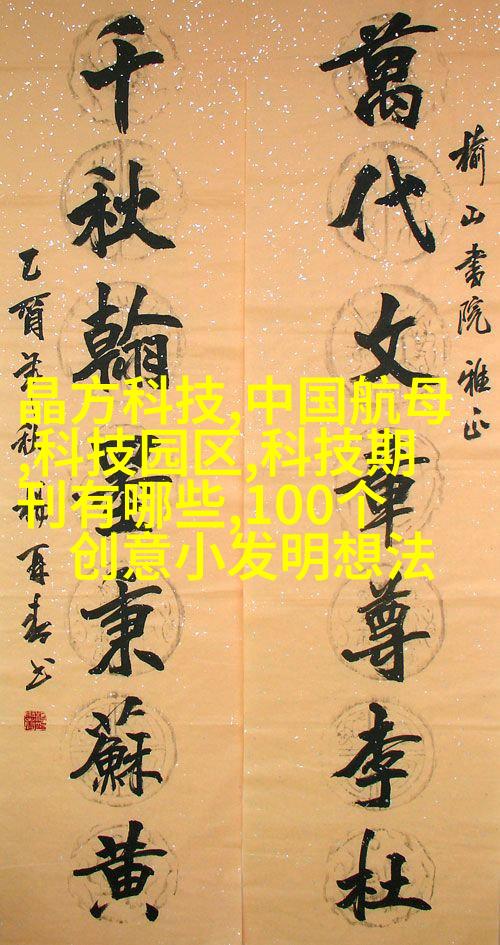 晶方科技,中国航母
,科技园区,科技期
刊有哪些,100个
创意小发明想法
榆山書院雅正
萬代文章尊李杜
千秋翰墨秉蘇黄